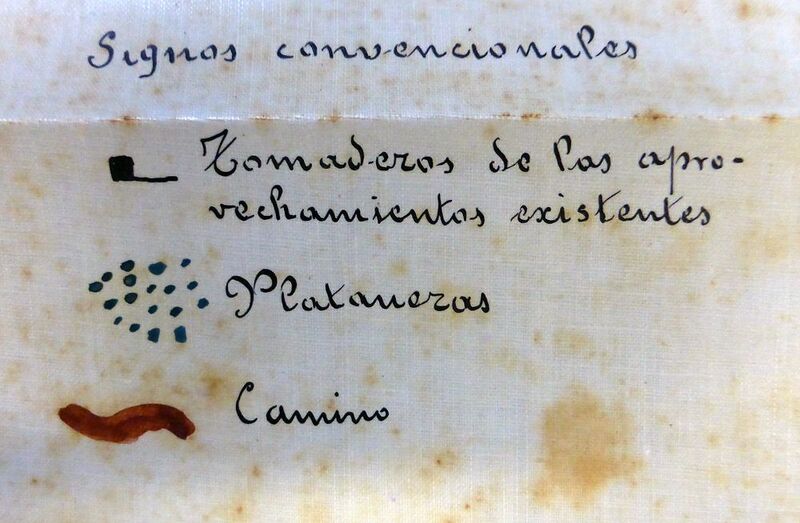 Signos convencionales
Tomaderos de los apro-
vechamientos existentes
Plataneras
Camino